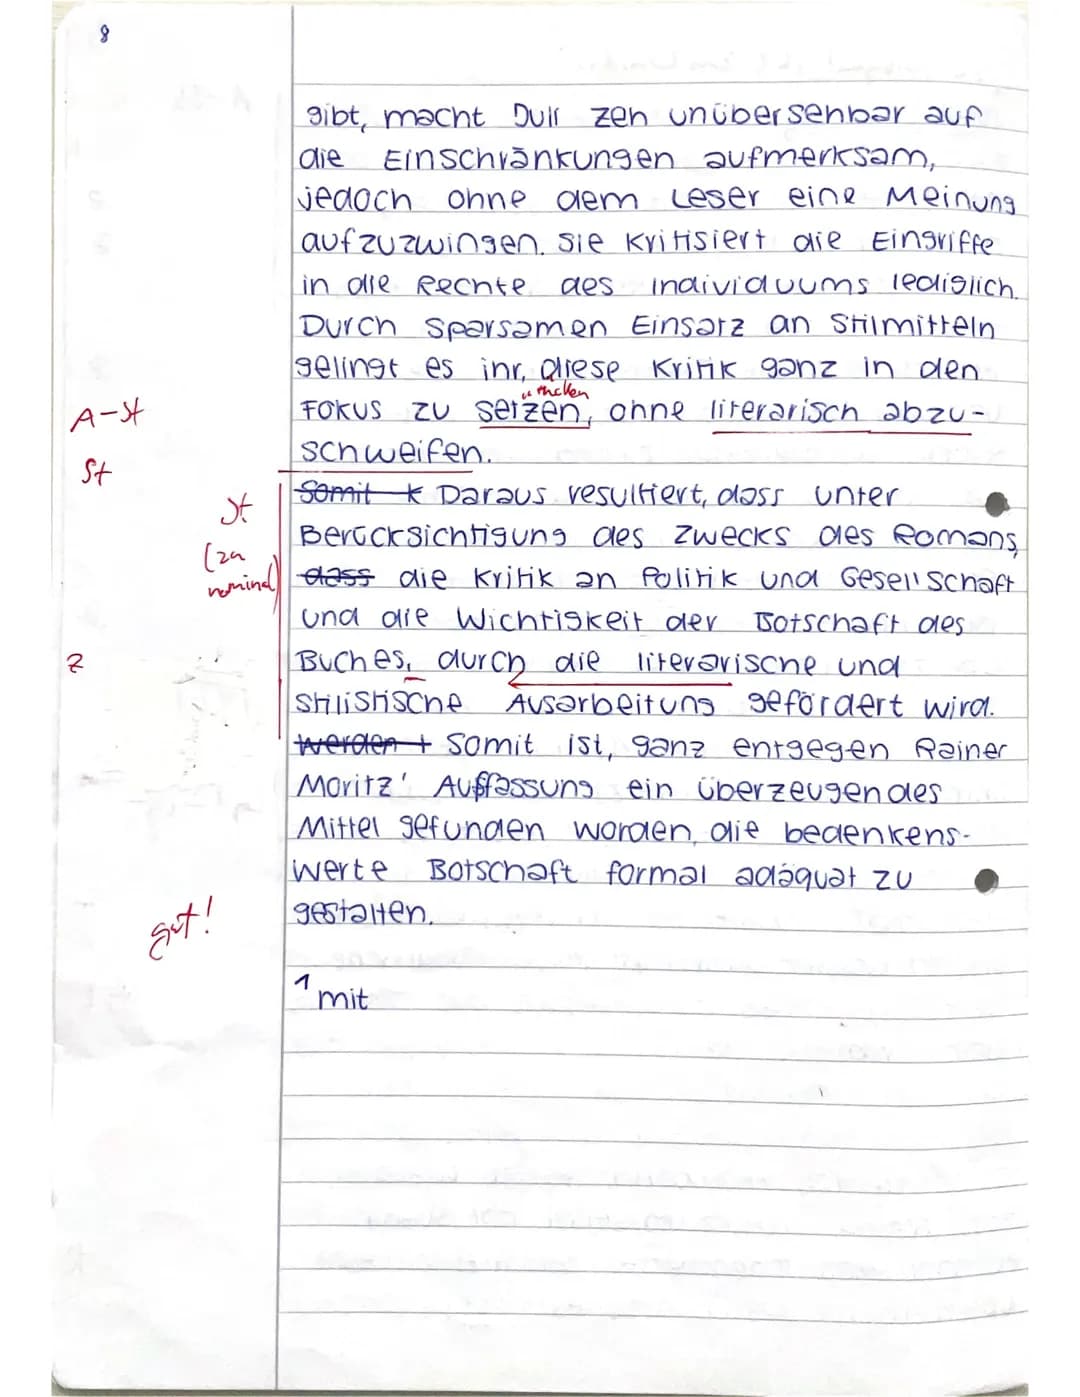 8
gibt, macht Duli zeh unübersehbar auf
die Einschränkungen aufmerksam,
jedoch ohne dem Leser eine Meinung
aufzuzwingen. Sie kritisiert die Eingriffe
in die Rechte des Individuums lediglich.
Durch sparsamen Einsatz an Stilmitteln
gelingt es ihr, diese Kritik ganz in den
Fokus zu setzen, ohne literarisch abzu-
A-St
schweifen.
St
Somit k Daraus resultiert, dass unter
St
Berücksichtigung des Zwecks des Romans,
(zu
dass die Kritik an Politik und Gesellschaft
nominal)
und die Wichtigkeit der Botschaft des
Buches, durch die literarische und
Z
stilistische Ausarbeitung gefördert wird.
werden t Somit ist, ganz entgegen Rainer
Moritz' Auffassung ein überzeugendes
Mittel gefunden worden, die bedenkens-
werte Botschaft formal adäquat zu
gestalten.
gut!
1 mit